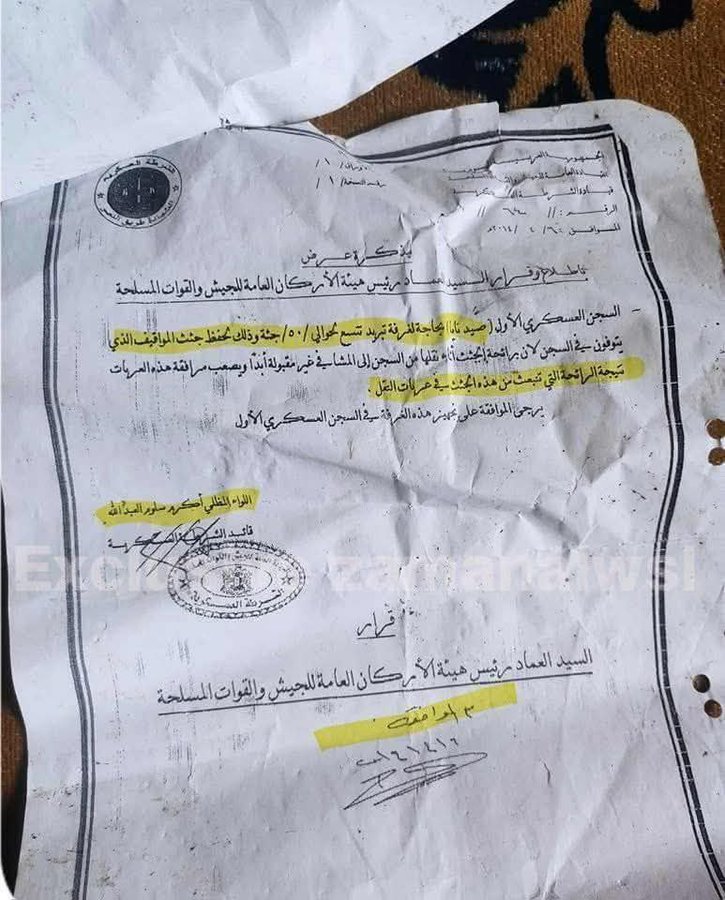 الجمهورية العربية
القيادة العامة للجيش والقوات المسلحة
قيادة الشرطة العسكرية
الرقم: //
الموافق: ٢٠١٤م
رقم النسخة /١/
الشرطة العسكرية
مذكرة عرض
باطلاع وقرار السيد العماد رئيس هيئة الأركان العامة للجيش والقوات المسلحة
السجن العسكري الأول (صيدنايا) بحاجة لغرفة تبريد تتسع لحوالي /٥٠/ جثة وذلك لحفظ جثث المواقيف الذي
يتوفون في السجن لان رائحة الجثث أثناء نقلها من السجن إلى المشافي غير مقبولة أبداً ويصعب مرافقة هذه العربات
نتيجة الرائحة التي تنبعث من هذه الجثث في عربات النقل .
يرجى الموافقة على تجهيز هذه الغرفة في السجن العسكري الأول
اللواء المظلي أكرم سلوم العبد الله
قائد الشرطة العسكرية
الشرطة العسكرية
Exclusive zamanalwsl
قرار
السيد العماد رئيس هيئة الأركان العامة للجيش والقوات المسلحة